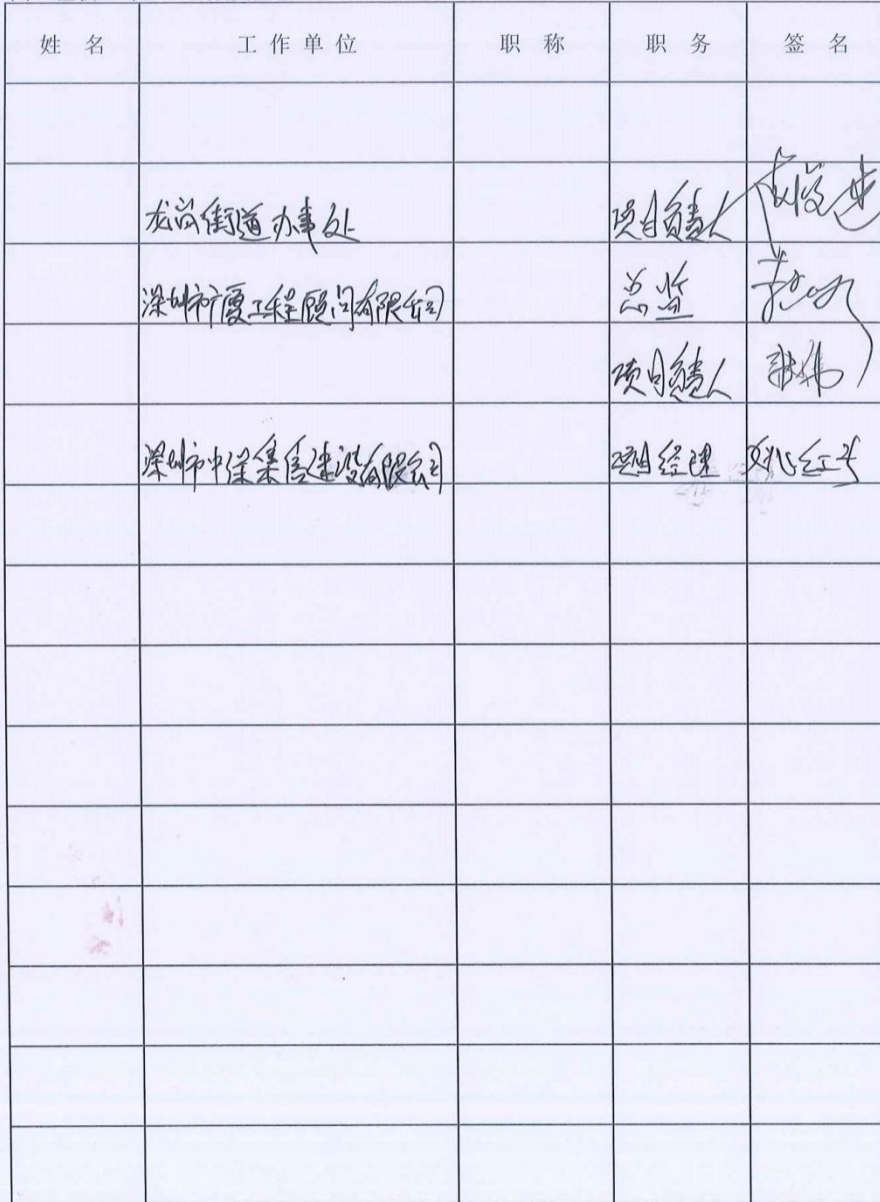 姓 名 工 作 单 位 职 称 职 务 签 名
龙岗街道办事处 项目负责人
深圳市广厦工程顾问有限公司 总监
项目负责人
深圳市中深集信建设有限公司 项目经理 姚红兵